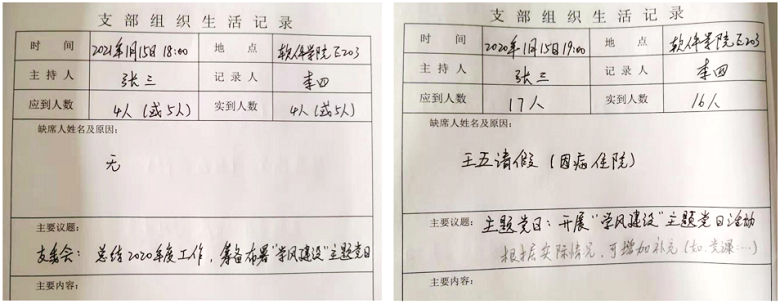 支部组织生活记录
时间 2021年1月15日 18:00 地点 软件学院E203
主持人 张三 记录人 李四
应到人数 4人(或5人) 实到人数 4人(或5人)
缺席人姓名及原因:
无
主要议题:
支委会: 总结2020年度工作, 筹备布署"学风建设"主题党日
主要内容:
支部组织生活记录
时间 2020年1月15日 19:00 地点 软件学院E203
主持人 张三 记录人 李四
应到人数 17人 实到人数 16人
缺席人姓名及原因:
王五请假(因病住院)
主要议题: 主题党日: 开展"学风建设"主题党日活动
根据实际情况, 可增加补充(如:党课……)
主要内容: